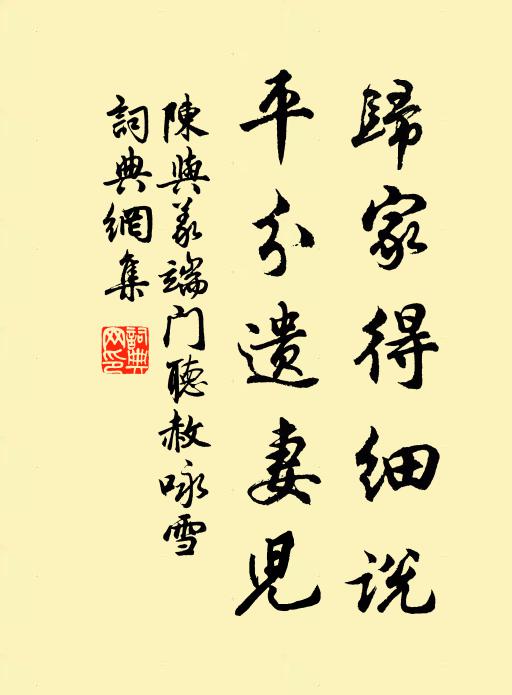 歸家得細說
平分遺妻兒
陳與義端门聽赦咏雪
詞典網集
詞典网印